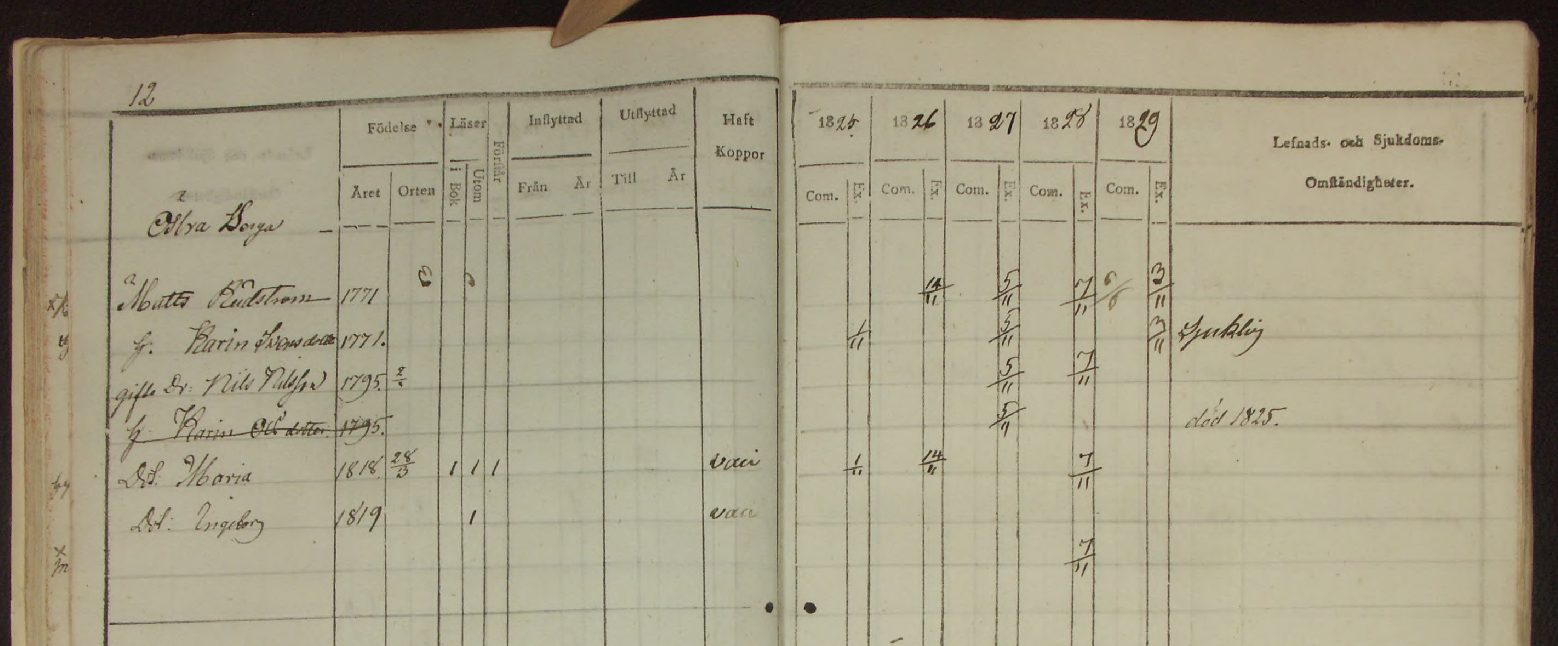 12
Födelse Läser Förstår Inflyttad Utflyttad Haft Koppor 1825 1826 1827 1828 1829 Lefnads- och Sjukdoms-
Omständigheter.
Året Orten i Bok Utom Från År Till År Com. Ex. Com. Ex. Com. Ex. Com. Ex. Com. Ex.
Matts 1771 14/11 5/11 7/11 6/6 3/11
h. Karin Svensdotter 1771. 1/11 5/11 3/11 Sjuklig
gifte Dr: Nils Nilsson 1795. 5/11 7/11
h. Karin dotter 1795. 5/11 död 1825.
Dot: Maria 1818. 28/3 1 1 1 vaci 1/11 14/11 7/11
Dot: Ingeborg 1819 1 vaci
7/11